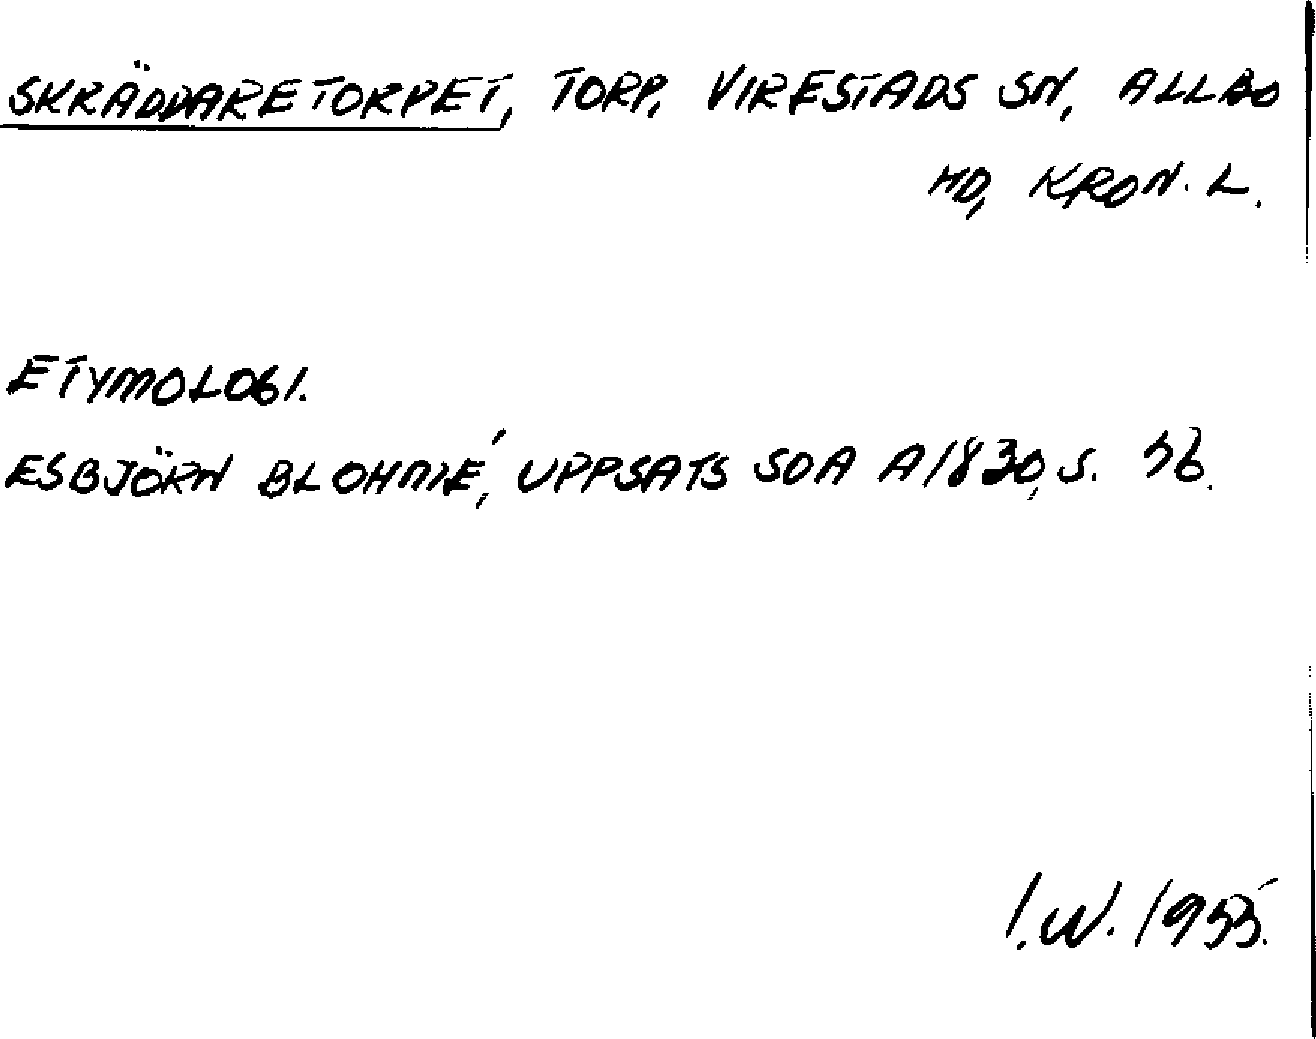 SKRÄDDARETORPET, TORP, VIRESTADS SN, ALLBO
HD, KRON. L.
ETYMOLOGI.
ESBJÖRN BLOHMÉ, UPPSATS SOA A1830, S. 56.
I.W. 1955.